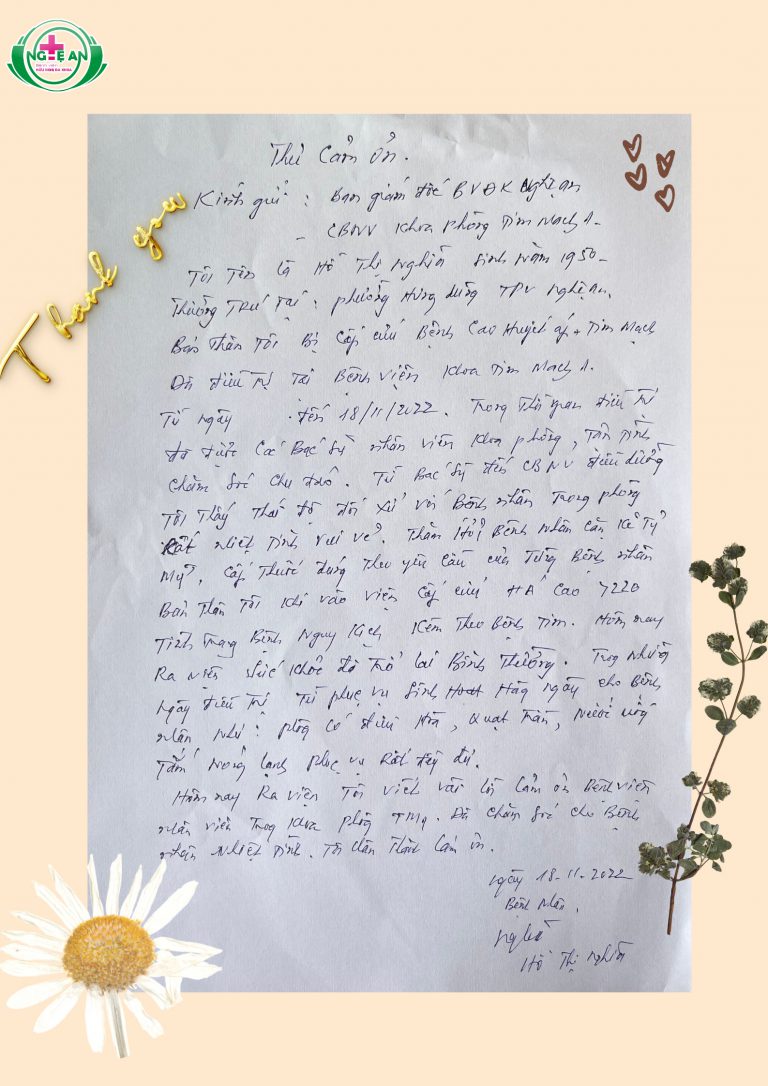 NGHỆ AN
Thank you
Thư Cảm ơn.
Kính gửi: Ban giám đốc BVĐK Nghệ an
- CBNV Khoa phòng Tim Mạch 1.
Tôi Tên là Hồ Thị Nghĩa Sinh Năm 1950.
Thường Trú Tại: phường Hưng dũng TPV Nghệ An.
Bản Thân Tôi Bị Cấp cứu Bệnh Cao Huyết áp + Tim Mạch
Đã điều Trị Tại Bệnh viện Khoa Tim Mạch 1.
Từ ngày đến 18/11/2022. Trong Thời gian điều Trị
đã được Các Bác Sỹ nhân viên Khoa phòng, Tận Tình
Chăm Sóc Chu đáo. Từ Bác Sỹ đến CBNV điều dưỡng
Tôi Thấy Thái độ đối xử với Bệnh nhân Trong phòng
Rất nhiệt Tình vui vẻ. Thăm Hỏi Bệnh nhân Cặn Kẽ Tỷ
Mỷ, Cấp Thuốc đúng Theo yêu Cầu của Từng Bệnh nhân
Bản Thân Tôi Khi vào viện Cấp cứu HA Cao 220
Tình Trạng Bệnh Nguy Kịch Kèm Theo Bệnh Tim. Hôm nay
Ra viện Sức Khỏe đã Trở lại Bình Thường. Trong Những
ngày điều Trị Từ phục vụ Sinh Hoạt Hàng ngày cho Bệnh
nhân như: phòng có điều Hòa, Quạt Trần, Nước uống
Tắm nóng lạnh phục vụ Rất đầy đủ.
Hôm nay Ra viện Tôi viết vài lời Cảm ơn Bệnh viện
nhân viên Trong Khoa phòng TM1. Đã chăm Sóc cho Bệnh
nhân Nhiệt Tình. Tôi chân Thành Cảm ơn.
ngày 18-11-2022
Bệnh Nhân.
Nghĩa
Hồ Thị Nghĩa